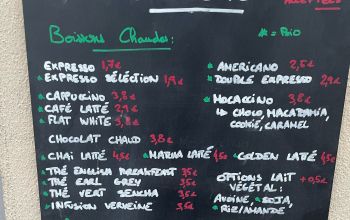 Boissons Chaudes:
* = Bio
EXPRESSO 1,7€
* EXPRESSO SÉLECTION 1,9€
* CAPPUCCINO 3,8€
* CAFÉ LATTE 2,9€
* FLAT WHITE 3,8€
CHOCOLAT CHAUD 3,8€
* CHAI LATTE 4,5€ * MATCHA LATTE 4,5€ * GOLDEN LATTE 4,5€
* THÉ ENGLISH BREAKFAST 3,5€
* THÉ EARL GREY 3,5€
* THÉ VERT SENCHA 3,5€
* INFUSION VERVEINE 3,5€
* AMERICANO 2,5€
* DOUBLE EXPRESSO 2,9€
* MOCACCINO 3,8€
↳ CHOCO, MACADAMIA,
COOKIE, CARAMEL
OPTIONS LAIT +0,5€
VÉGÉTAL:
AVOINE, * SOJA,
* RIZ/AMANDE